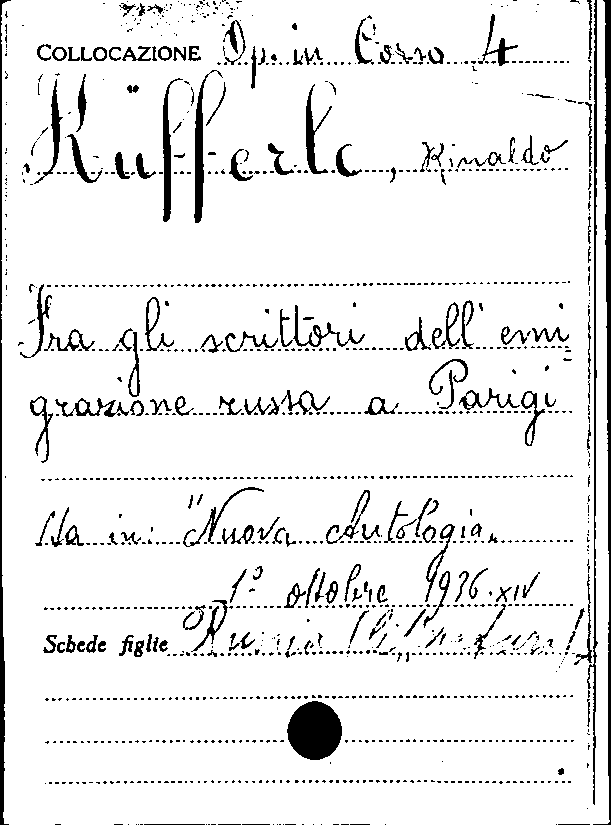 COLLOCAZIONE Op. in Corso 4
Küfferle, Rinaldo
Fra gli scrittori dell'emi=
grazione russa a Parigi
Sta in: "Nuova Antologia"
1º ottobre 1936. XIV
Schede figlie Russia